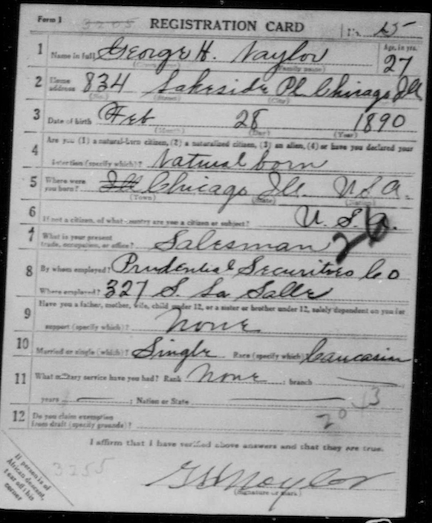 Form 1 3205 REGISTRATION CARD No. 25
1 Name in full George H. Naylor Age, in yrs. 27
(Given name) (Family name)
2 Home address 834 Lakeside Pl Chicago Ill
(No.) (Street) (City)
3 Date of birth Feb 28 1890
(Month) (Day) (Year)
4 Are you (1) a natural-born citizen, (2) a naturalized citizen, (3) an alien, (4) or have you declared your
intention (specify which)? Natural born
5 Where were you born? Ill Chicago Ill. U.S.A.
(Town) (State) (Nation)
6 If not a citizen, of what country are you a citizen or subject? U.S.A.
7 What is your present trade, occupation, or office? Salesman 20
8 By whom employed? Prudential Securities Co
Where employed? 327 S La Salle
9 Have you a father, mother, wife, child under 12, or a sister or brother under 12, solely dependent on you for
support (specify which)? None
10 Married or single (which)? Single Race (specify which)? Caucasian
11 What military service have you had? Rank None ; branch
years ; Nation or State
12 Do you claim exemption from draft (specify grounds)?
I affirm that I have verified above answers and that they are true.
3255
G H Naylor
(Signature or mark)
If person is of African descent, tear off this corner